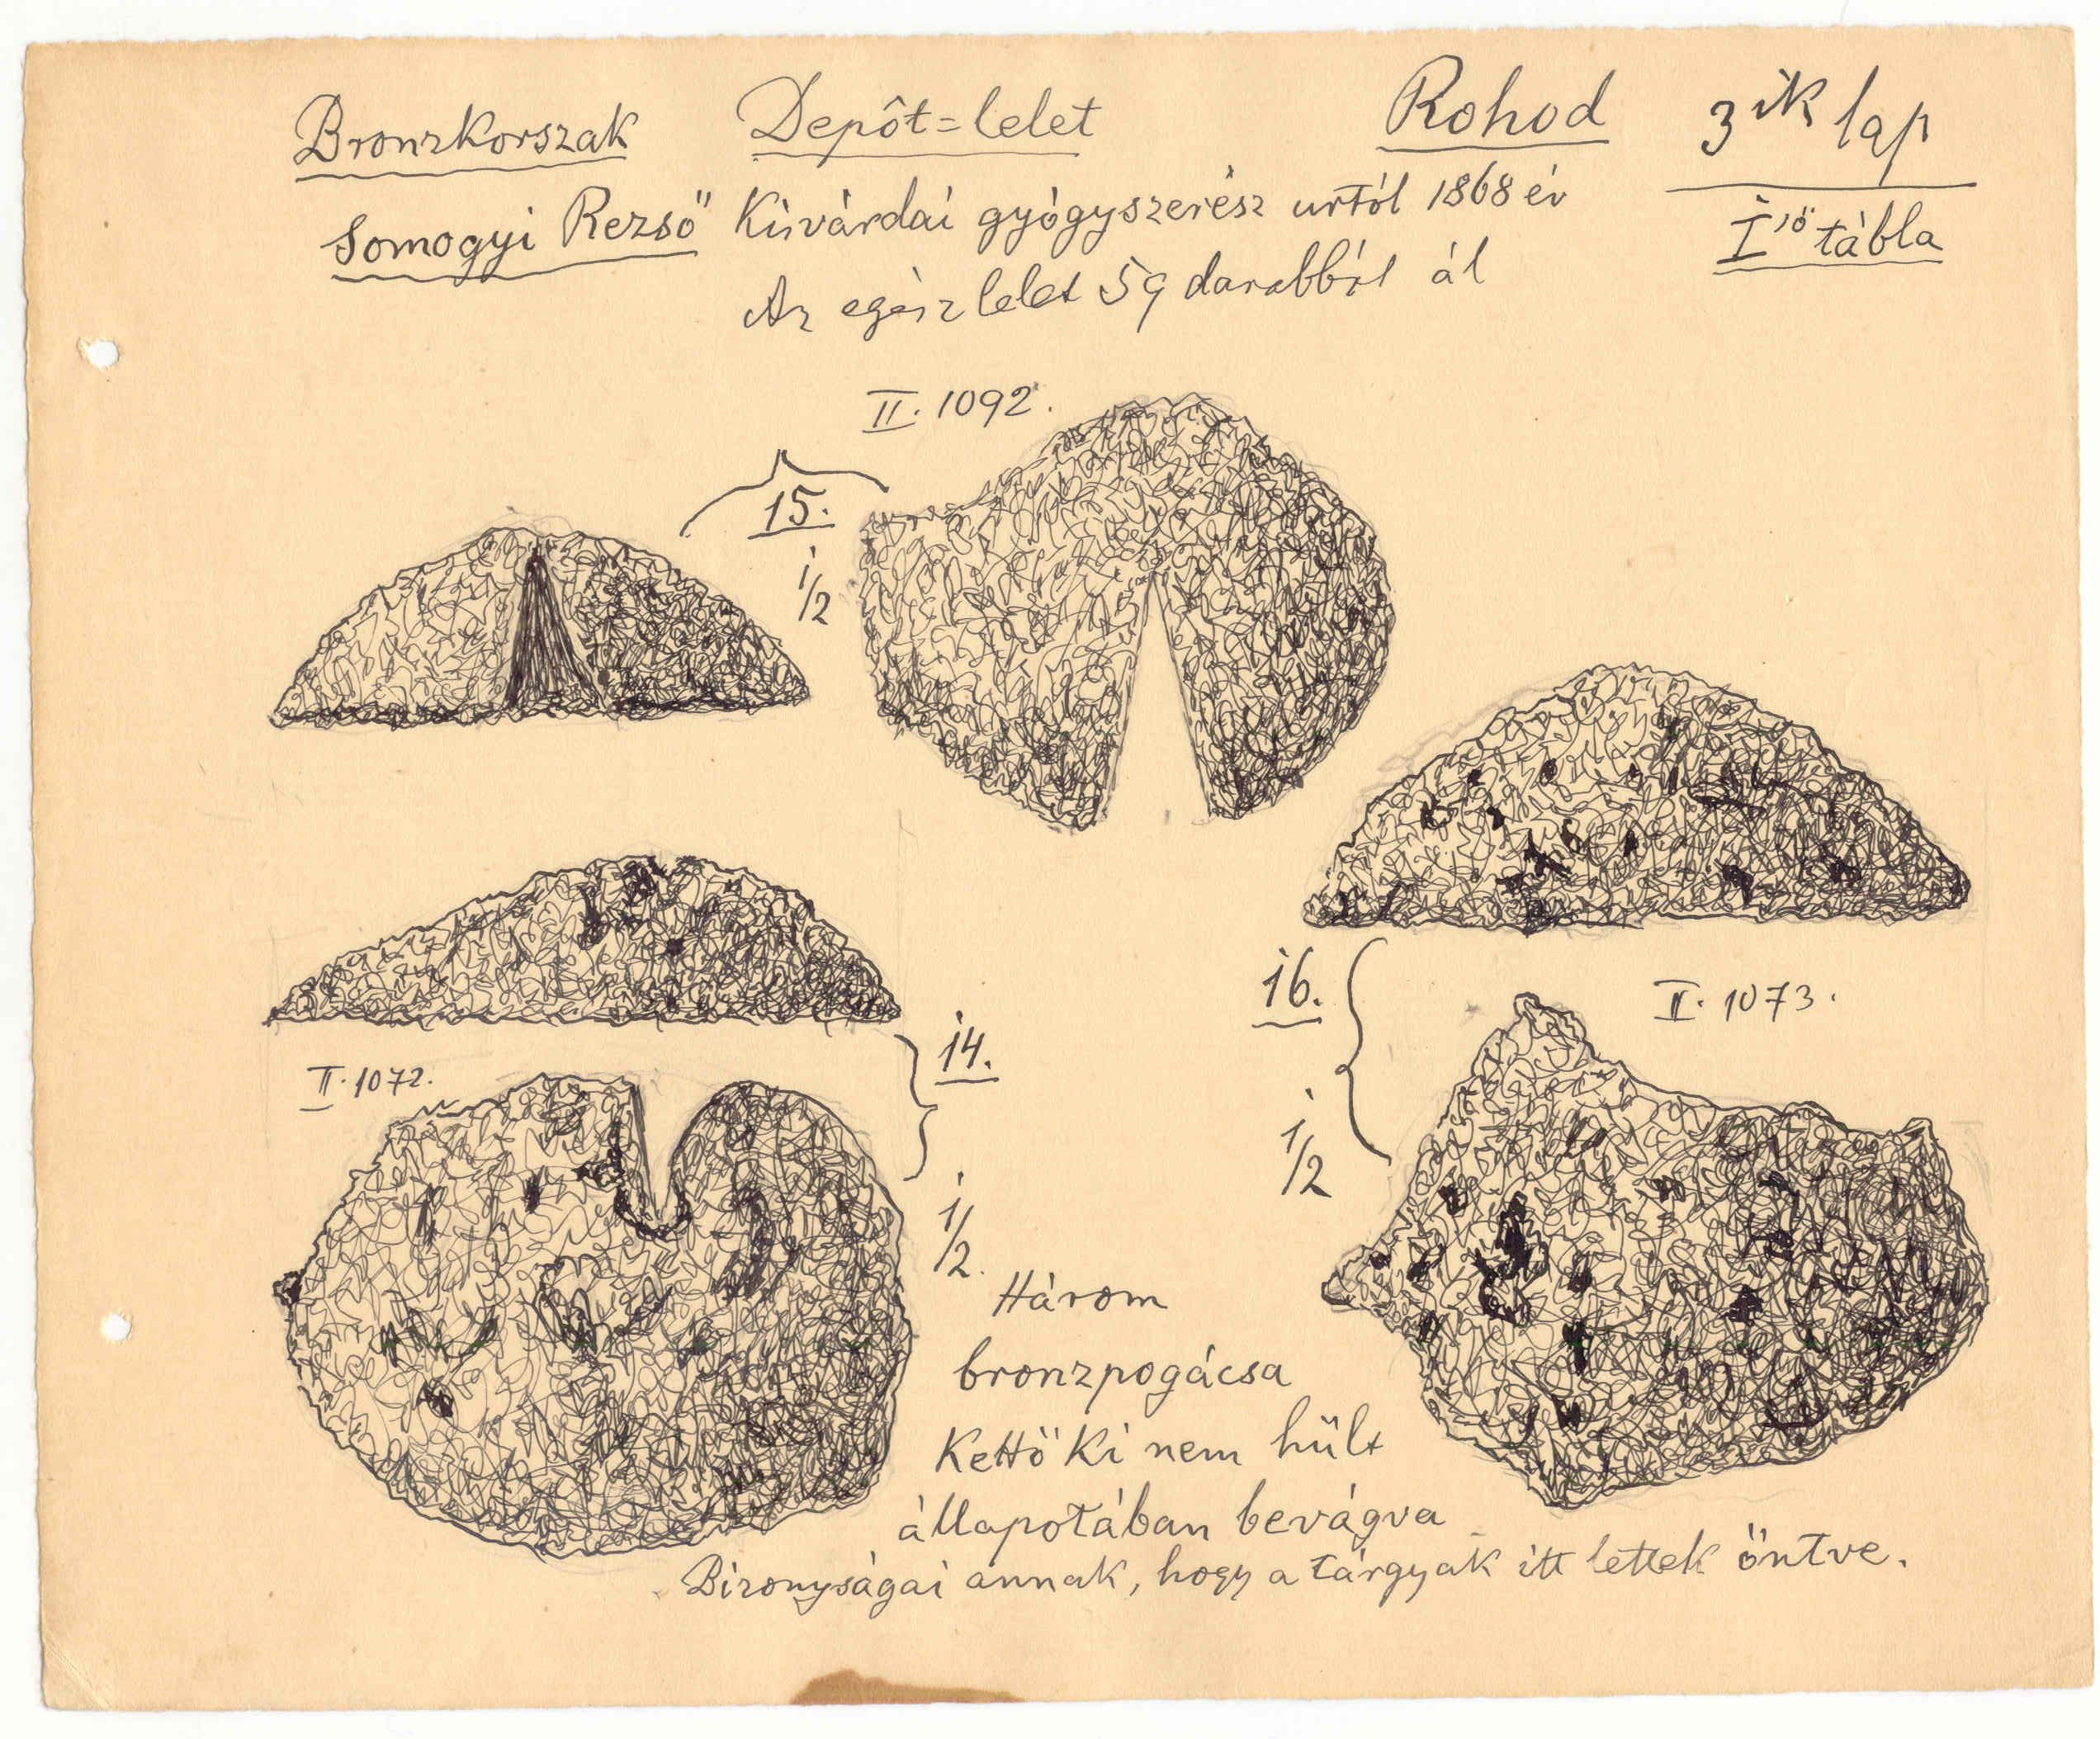 Bronzkorszak Depôt=lelet Rohod 3ik lap
Somogyi Rezső Kisvárdai gyógyszerész urtól 1868 év I ső tábla
Az egész lelet 59 darabból ál
II. 1092.
15.
1/2
16.
II. 1073.
14.
II. 1072.
1/2
1/2
Három
bronzpogácsa
Kettö Ki nem hült
állapotában bevágva
Bizonyságai annak, hogy a tárgyak itt lettek öntve.